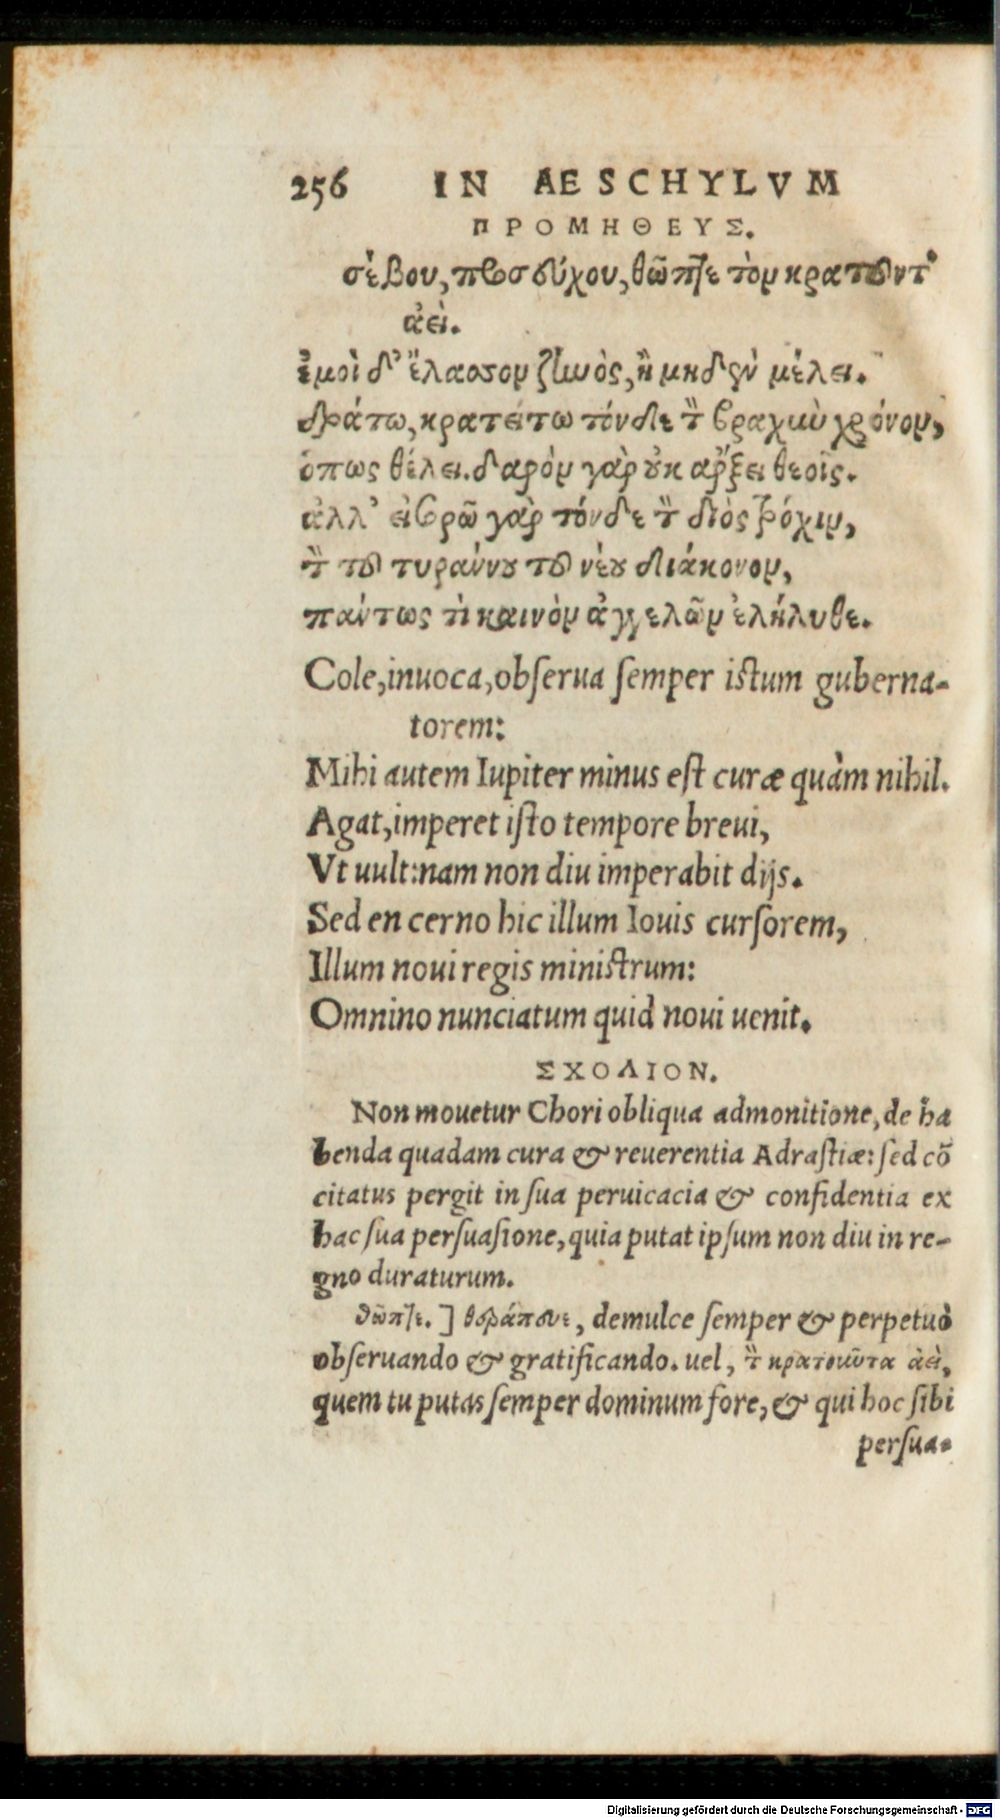 256 IN AESCHYLVM
ΠΡΟΜΗΘΕΥΣ.
σέβου, προσεύχου, θῶπτε τὸν κρατοῦντ'
ἀεὶ.
ἐμοὶ δ' ἔλασσον ζηνὸς, ἢ μηδὲν μέλει.
δράτω, κρατείτω τόνδε τὸν βραχὺν χρόνον,
ὅπως θέλει. δαρὸν γὰρ οὐκ ἄρξει θεοῖς.
ἀλλ' εἰσορῶ γὰρ τόνδε τὸν διὸς τρόχιν,
τὸν τοῦ τυράννου τοῦ νέου διάκονον,
πάντως τὶ καινὸν ἀγγελῶν ἐλήλυθε.
Cole,inuoca,obſerua ſemper iſtum guberna-
torem:
Mihi autem Iupiter minus eſt curæ quàm nihil.
Agat,imperet iſto tempore breui,
Vt uult:nam non diu imperabit dijs.
Sed en cerno hic illum Iouis curſorem,
Illum noui regis miniſtrum:
Omnino nunciatum quid noui uenit.
ΣΧΟΛΙΟΝ.
Non mouetur Chori obliqua admonitione, de ha
benda quadam cura & reuerentia Adraſtiæ: ſed cõ
citatus pergit in ſua peruicacia & confidentia ex
hac ſua perſuaſione, quia putat ipſum non diu in re-
gno duraturum.
θῶπτε.] θεράπευε, demulce ſemper & perpetuò
obſeruando & gratificando. uel, τὸν κρατοῦντα ἀεὶ,
quem tu putas ſemper dominum fore, & qui hoc ſibi
perſua-
Digitalisierung gefördert durch die Deutsche Forschungsgemeinschaft - DFG